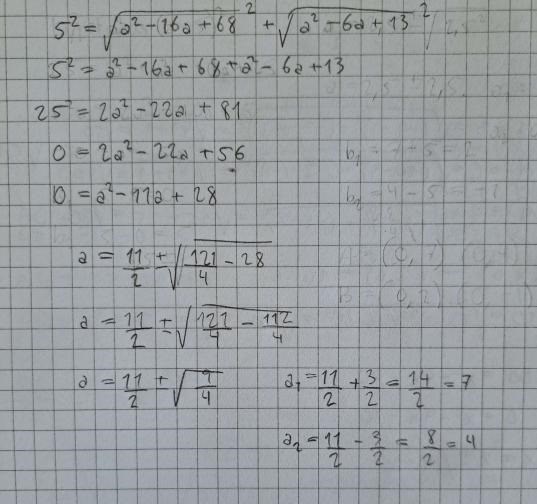 5² = √(a² - 16a + 68)² + √(a² - 6a + 13)²
5² = a² - 16a + 68 + a² - 6a + 13
25 = 2a² - 22a + 81
0 = 2a² - 22a + 56
0 = a² - 11a + 28
a = 11/2 ± √(121/4 - 28)
a = 11/2 ± √(121/4 - 112/4)
a = 11/2 ± √(9/4)
a₁ = 11/2 + 3/2 = 14/2 = 7
a₂ = 11/2 - 3/2 = 8/2 = 4